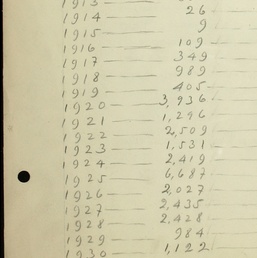 1913
1914 — 26
1915 — 9
1916 — 109
1917 — 349
1918 — 989
1919 — 405
1920 — 3,936
1921 — 1,296
1922 — 2,509
1923 — 1,531
1924 — 2,419
1925 — 6,687
1926 — 2,027
1927 — 2,435
1928 — 2,428
1929 — 984
1930 — 1,122